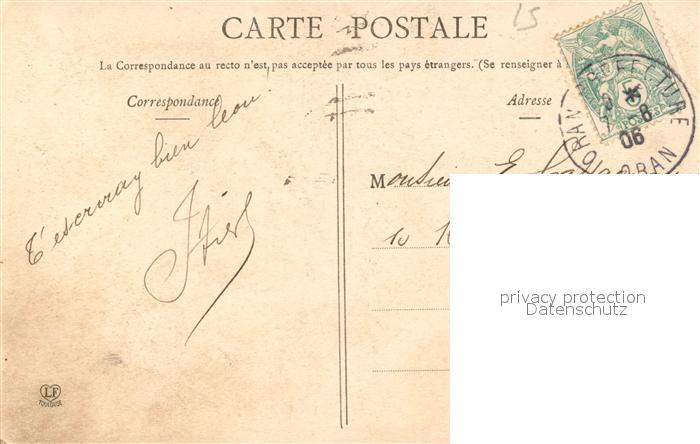 15
CARTE POSTALE
La Correspondance au recto n'est pas acceptée par tous les pays étrangers. (Se renseigner à
Correspondance
Adresse
PREFECTURE
8
06
ORAN ORAN
T'escrivay bien leou.
Monsieur E.
LF
TOULOUSE
privacy protection
Datenschutz